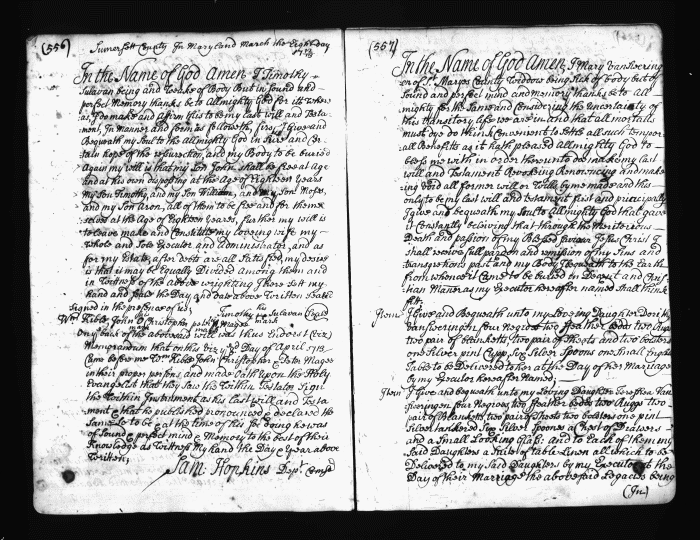 (556)
Sumersett County In Maryland March the Eight day
In the Name of God Amen I Timothy
Sulavan being and Weake of Body But in sound and
perfect Memory thanks be to allmighty God for itt
as, I do make and afirm this to be my last will and Testa-
ment, In manner and form as followeth, first, I Give and
Bequeath my Soul to the allmighty God in and Cer-
tain hope of the resurection, and my Body to be buried
Again my will is that my Son John shall be free at age
and at his own disposing at the age of Eighteen years
My Son Timothy, and my Son William, and my Son Moses,
and my Son Aron, all of them to be free and for them-
selves at the Age of Eighteen years, further my will is
to leave make and Constitute my loveing wife my
whole and Sole Executor and Administrator, and as
for my Estate, after debt are all Satisfied, my desire
is that it may be Equally Divided among them and
in Witness of the above wrighting I here Sett my
hand and the Day and date above written
Signed in the presence of us
Timothy his Sulavan Seal
mark
Wm Kible, John Christoph peter Mager
On y back of the aboves. will was thus Endorst (Viz)
Memorandum that on this day of April 1713
Came before me Wm Kible John Christopher Peter Mager
in their proper persons, and made Oath upon the Holy
Evangelist that they saw the within Testator Sign
the within Instrument as his Last will and Testa-
ment & that he published pronounced & declared the
Same to be & at the time of his So doing he was
of Sound & perfect mind & Memory to the best of their
Knowledge as Witness my hand the Day & year above
written;
Sam Hopkins Dept Coms
(557)
In the Name of God Amen I Mary Vansweringen
en of St. Maryes County Widdow being Sick of body but of
Sound and perfect mind and memory thanks be to all-
mighty for the Same and Considering the uncertainty of
this transitory life we are in and that all mortalls
must dye do think Convenient to Settle all such tempor-
all benefitts as it hath pleased allmighty God to
bless me with in order thereunto do make my last
will and Testament Revoking Renouncing and make-
ing void all former will or Wills by me made and this
only to be my last will and testament first and principaly
I give and bequeath my Soul to Allmighty God that gave
it Constantly believing that through the Meritorious
Death and passion of my Blessed Saviour Jesus Christ I
shall receive full pardon and remission of my Sins and
transgretions past and my Body I bequeath to the Earth
from whence it came to be buried in Decent and Chris-
tian Manner as my Executor hereafter named Shall think
fitt
Item I Give and Bequeath unto my Loveing Daughter
Vansweringen four Negroes two feather beds two Ruggs
two pair of blanketts two pair of Sheets and two bolsters
one Silver pint Cupp Six Silver Spoons one Small English
Table to be Delivered to her at the Day of her Marriage
by my Executor hereafter Named;
Item I Give and bequeath unto my Loving Daughter Teresha Van-
sweringen four Negroes two feather beds two Ruggs two
pair of Blanketts two pair of Sheets two bolsters one pint
Silver tankered Six Silver Spoons a Chest of Drawers
and a Small Looking Glass: and to Each of them my
Said Daughters a Suite of table Linen all which to be
Delivered to my Said Daughters by my Executor at the
Day of their Marriage the abovesaid Legacies being
(In)